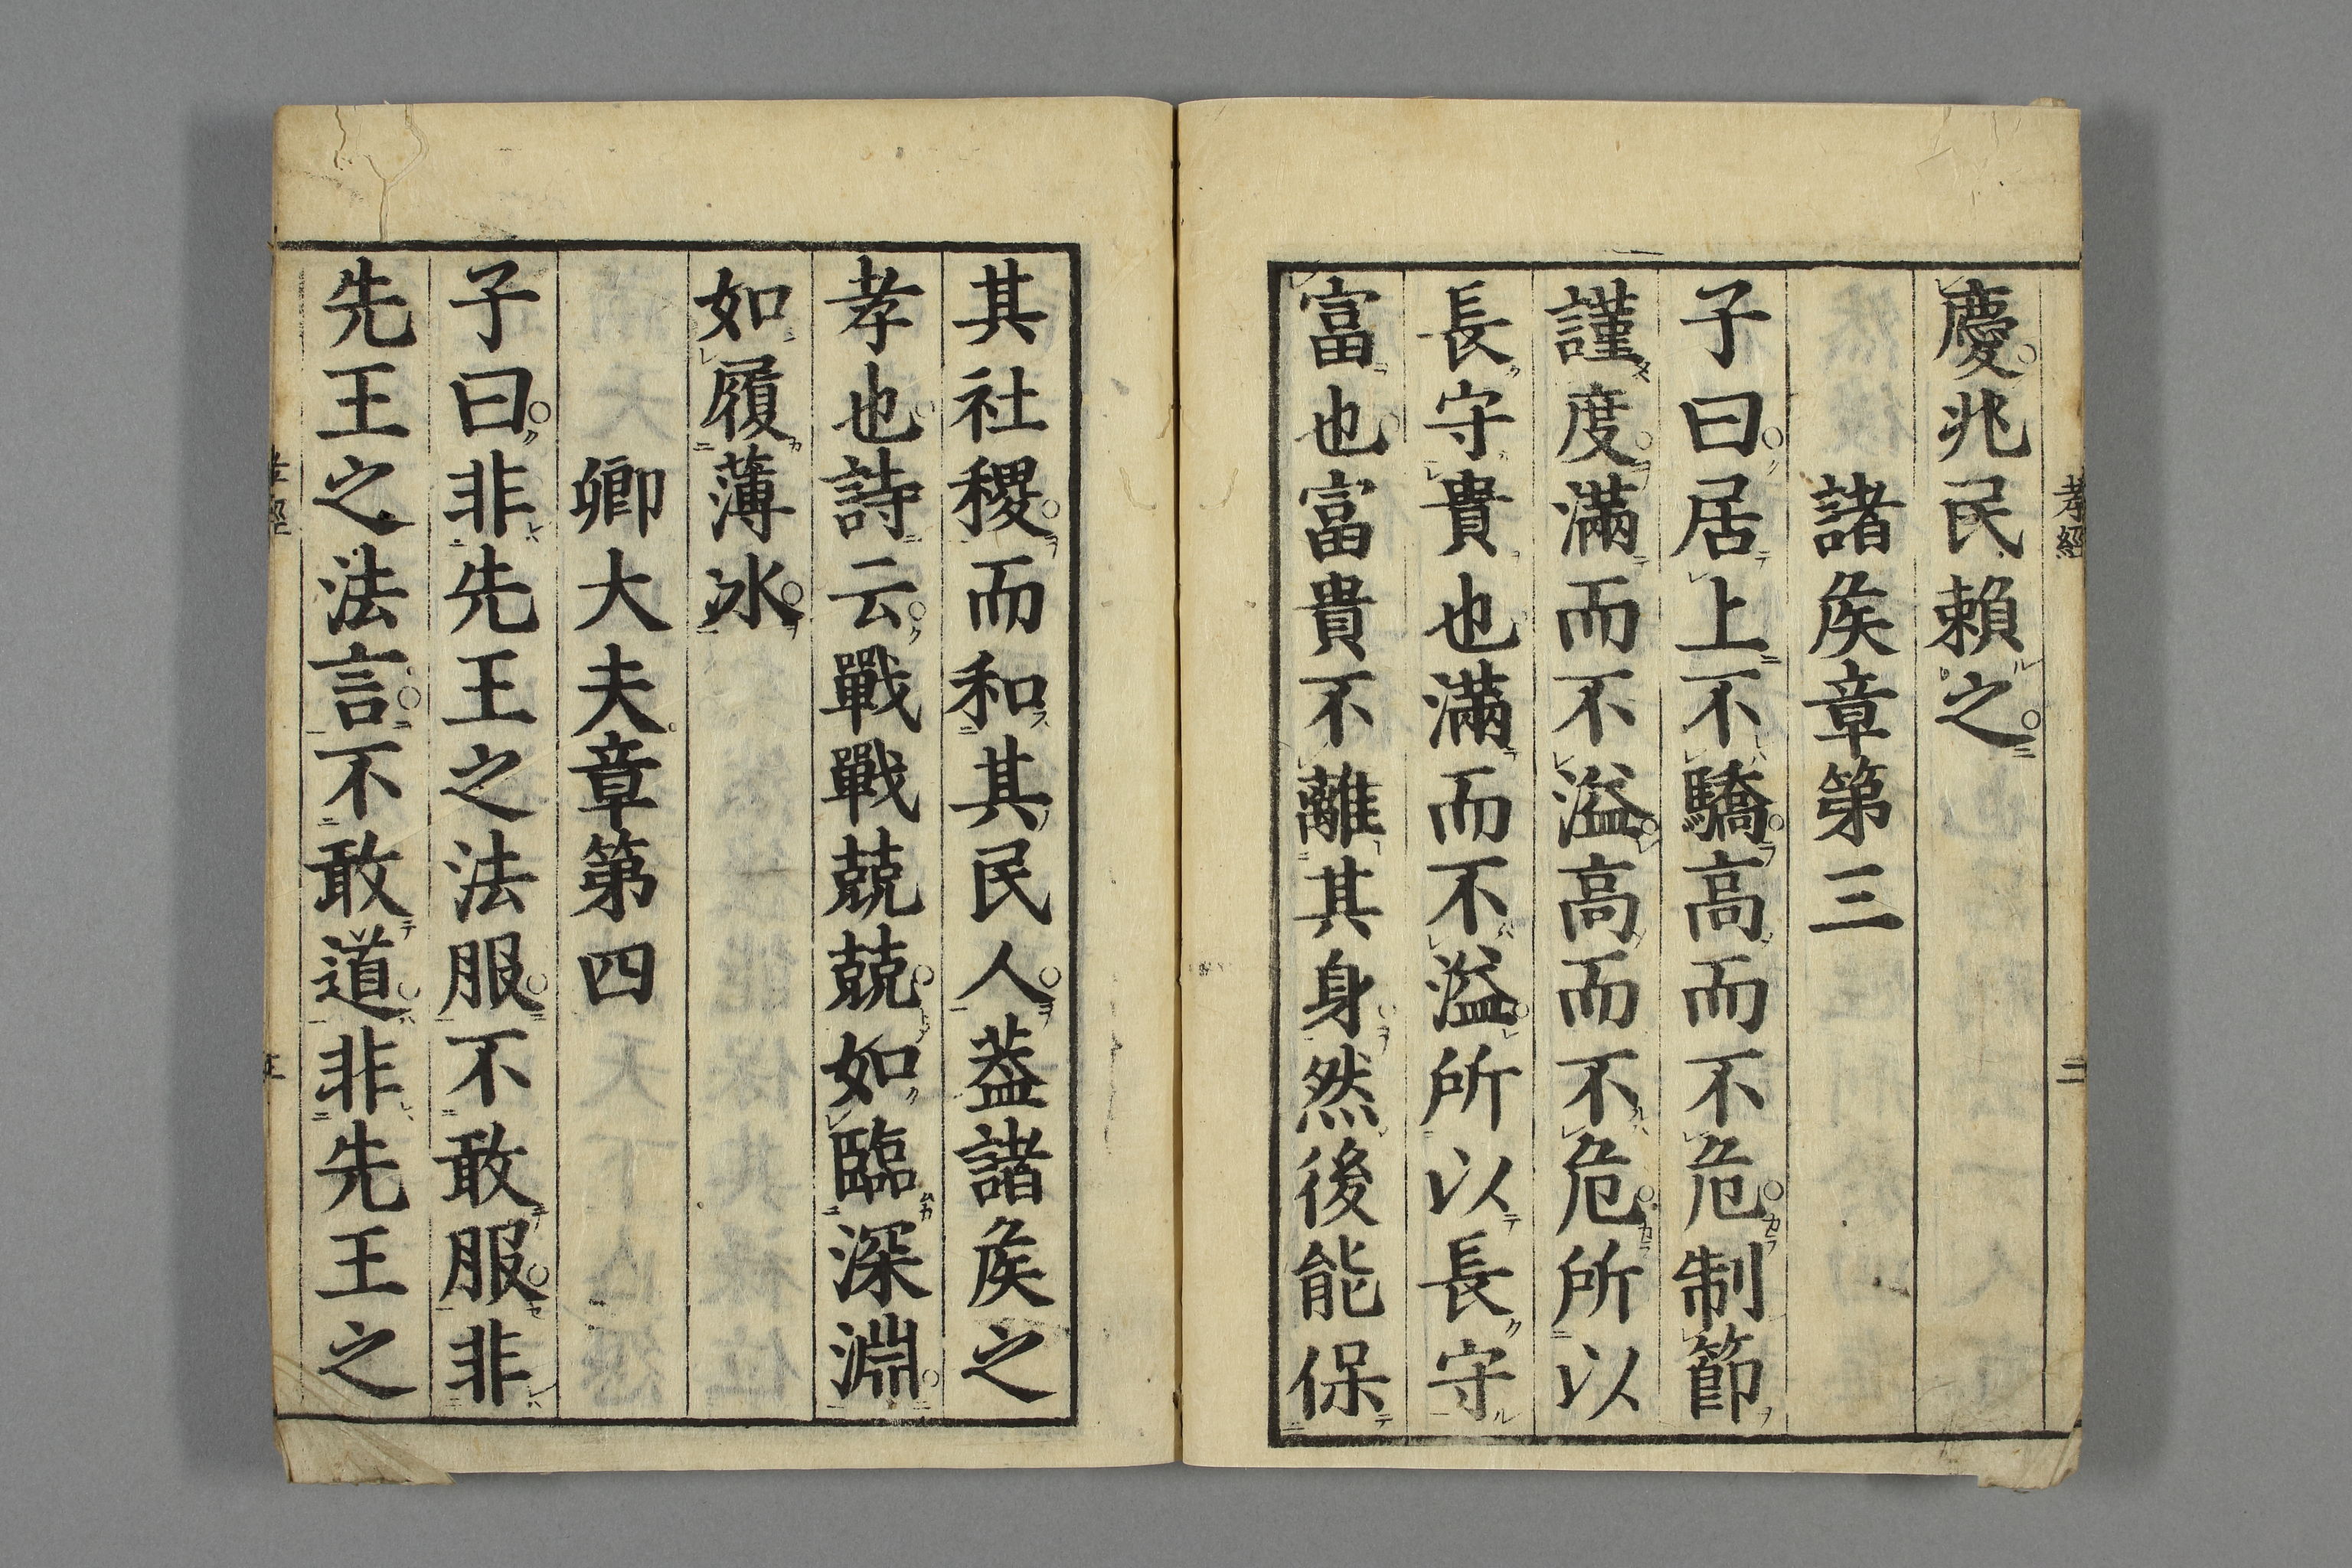 孝經
二
慶兆民賴之
諸矦章第三
子曰居上不驕高而不危制節
謹度滿而不溢高而不危所以
長守貴也滿而不溢所以長守
富也富貴不離其身然後能保
其社稷而和其民人葢諸矦之
孝也詩云戰戰兢兢如臨深淵
如履薄冰
卿大夫章第四
子曰非先王之法服不敢服非
先王之法言不敢道非先王之